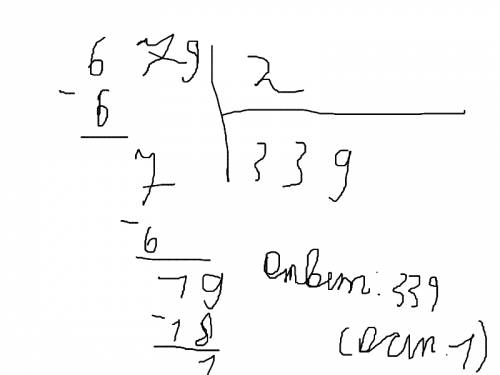 679 2
- 6
7 339
- 6
19
- 18
1
Ответ: 339
(ост. 1)